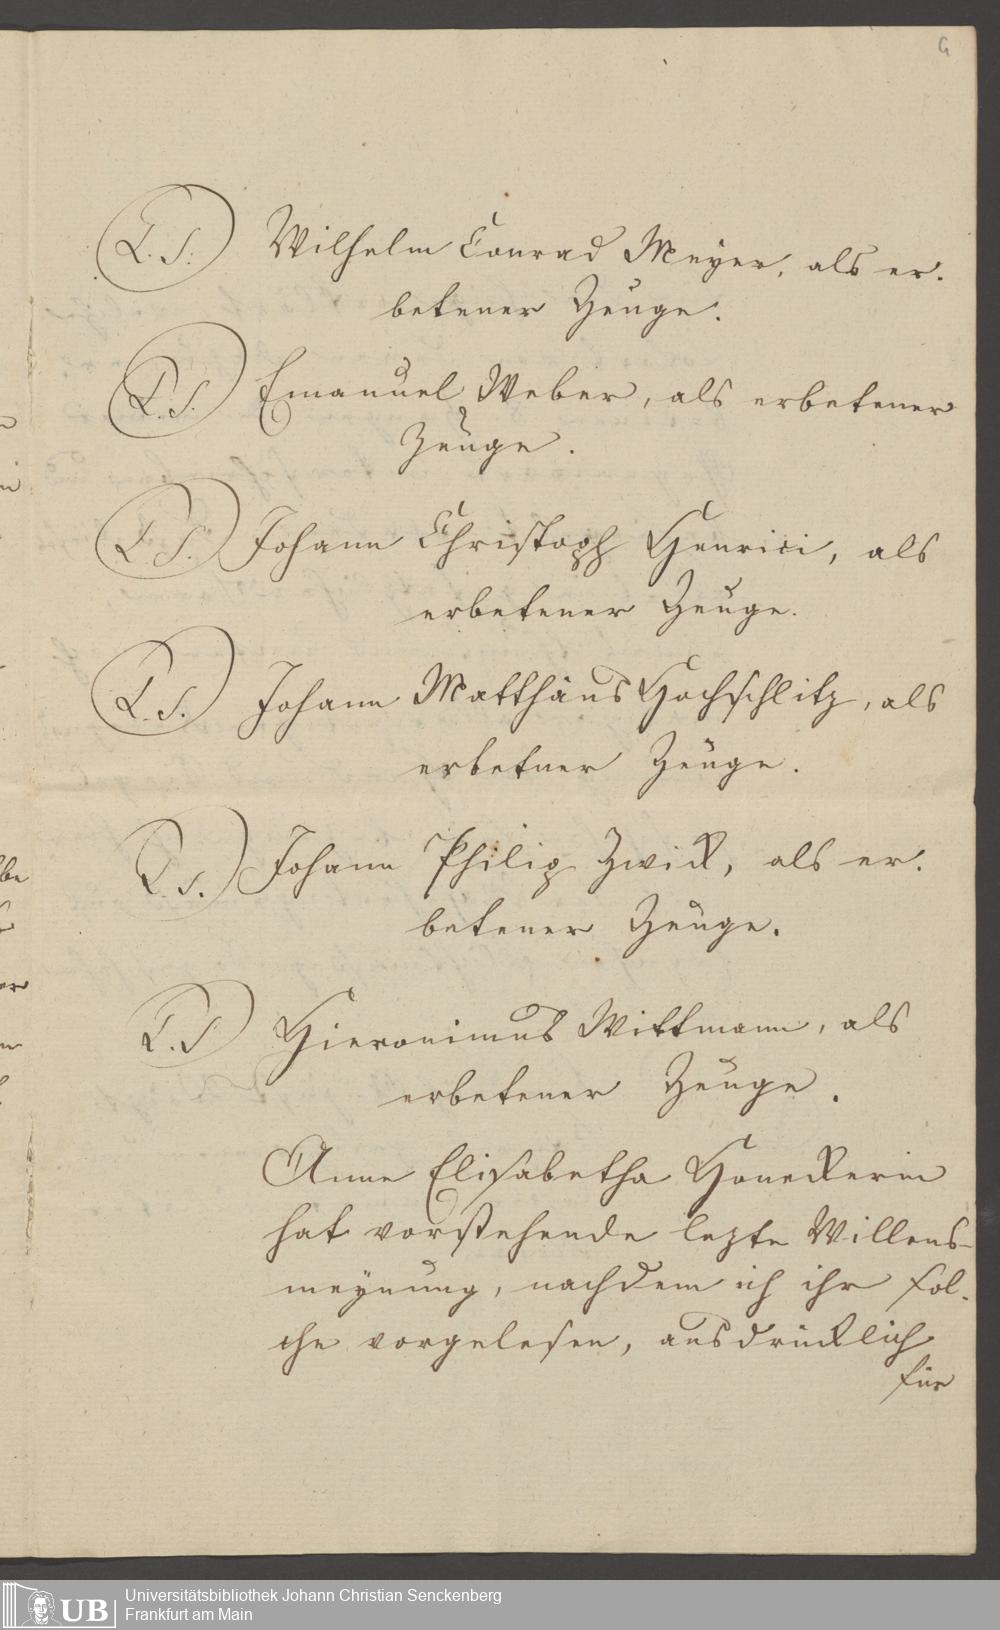 G
L. S. Wilhelm Conrad Meyer, als er-
betener Zeuge.
L. S. Emanuel Weber, als erbetener
Zeuge.
L. S. Johann Christoph Henrici, als
erbetener Zeuge.
L. S. Johann Matthäus Hochschlitz, als
erbetner Zeuge.
L. S. Johann Philip Zwick, als er-
betener Zeuge.
L. S. Hieronimus Wittmann, als
erbetener Zeuge.
Anne Elisabetha Honeckerin
hat vorstehende lezte Willens-
meynung, nachdem ich ihr sol-
che vorgelesen, ausdrücklich
für
UB
Universitätsbibliothek Johann Christian Senckenberg
Frankfurt am Main